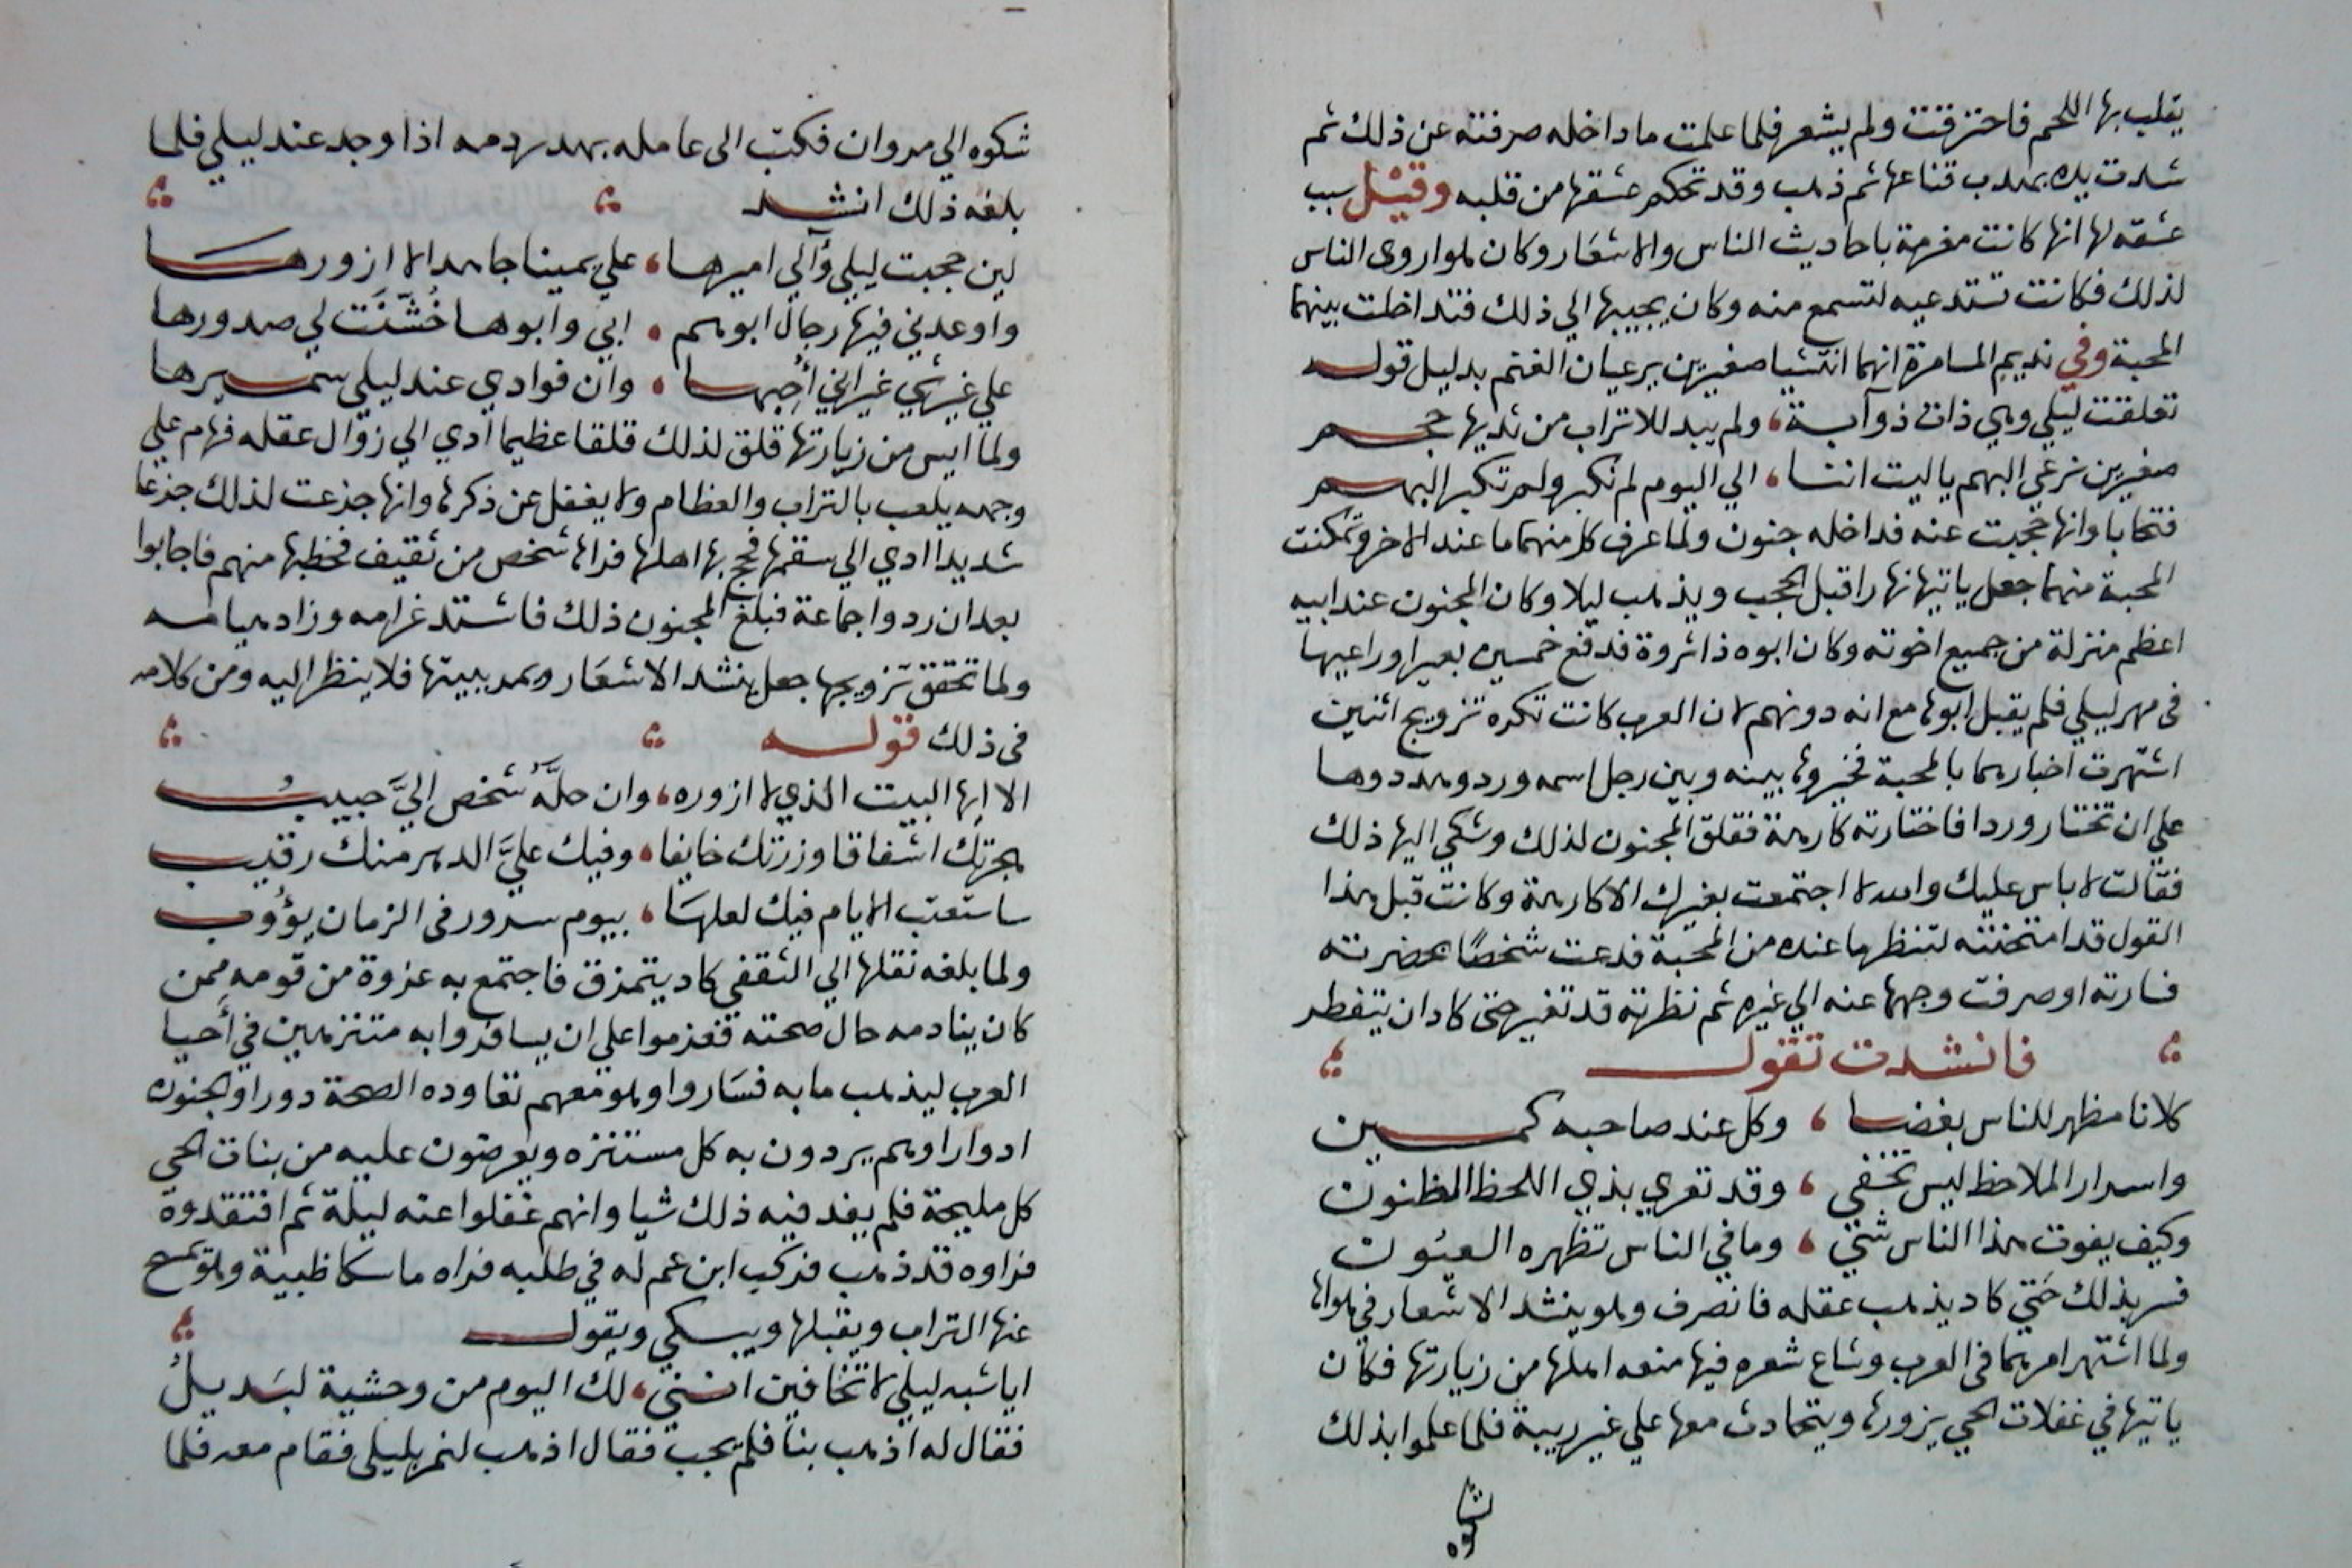 يقلب بها اللحم فاحترقت ولم يشعر فلما علمت ما داخله صرفته عن ذلك ثم
شدت يده بهدب قناعها ثم ذهب وقد تحكم عشقها من قلبه وقيل سبب
عشقه لها انها كانت مغرمة باحاديث الناس والاشعار وكان هو اروى الناس
لذلك فكانت تستدعيه لتسمع منه وكان يجيبها الي ذلك فتداخلت بينهما
المحبة وفي نديم المسامرة انهما انتشيا صغيرين يرعيان الغنم بدليل قوله
تعلقت ليلي وهي ذات ذوآبة ولم يبد للاتراب من ثديها حجم
صغيرين نرعي البهم ياليت اننا الي اليوم لم نكبر ولم تكبر البهم
فتحابا وانها حجبت عنه فداخله جنون ولما عرف كل منهما ما عند الاخر وتمكنت
المحبة منهما جعل ياتيها نهارا قبل الحجب ويذهب ليلا وكان المجنون عند ابيه
اعظم منزلة من جميع اخوته وكان ابوه ذا ثروة فدفع خمسين بعيرا وراعيها
في مهر ليلي فلم يقبل ابوها مع انه دونهم لان العرب كانت تكره تزويج اثنين
اشتهرت اخبارهما بالمحبة فخيروها بينه وبين رجل اسمه ورد وهددوها
علي ان تختار وردا فاختارته كارهة فقلق المجنون لذلك وشكي اليها ذلك
فقالت لا باس عليك والله لا اجتمعت بغيرك الا كارهة وكانت قبل هذا
القول قد امتحنته لتنظر ما عنده من المحبة فدعت شخصا بحضرته
فسارته او صرفت وجهها عنه الي غيره ثم نظرته قد تغير حتى كاد ان يتفطر
فانشدت تقول
كلانا مظهر للناس بغضا وكل عند صاحبه كمين
واسرار الملاحظ ليس تخفي وقد تغري بذي اللحظ الظنون
وكيف يفوت هذا الناس شئ وما في الناس تظهره العيون
فسر بذلك حتي كاد يذهب عقله فانصرف وهو ينشد الاشعار في هواها
ولما اشتهر امرهما في العرب وشاع شعره فيها منعه اهلها من زيارتها فكان
ياتيها في غفلات الحي يزورها ويتحادث معها علي غير ريبة فلما علموا بذلك
شكوه
شكوه الي مروان فكتب الى عامله بهدر دمه اذا وجد عند ليلي فلما
بلغه ذلك انشد
لين حجبت ليلي وآلي اميرها علي يمينا جاهدا لا ازورها
واوعدني فيها رجال ابوهم ابي وابوها خُشّنَت لي صدورها
علي غير شئ غير اني أحبها وان فوادي عند ليلي سميرها
ولما ايس من زيارتها قلق لذلك قلقا عظيما ادي الي زوال عقله فهام علي
وجهه يلعب بالتراب والعظام ولا يغفل عن ذكرها وانها جزعت لذلك جزعا
شديدا ادي الي سقمها فحج بها اهلها فراها شخص من ثقيف فخطبها منهم فاجابوا
بعد ان ردوا جماعة فبلغ المجنون ذلك فاشتد غرامه وزاد هيامه
ولما تحقق تزويجها جعل ينشد الاشعار ويمر ببيتها فلا ينظر اليه ومن كلامه
في ذلك قوله
الا ايها البيت الذي لا ازوره وان حلَّه شخص اليَّ حبيبُ
هجرتك اشفاقا وزرتك خايفا وفيك عليَّ الدهر منك رقيب
ساستعتب الايام فيك لعلها بيوم سرور في الزمان يؤوب
ولما بلغه نقلها الي الثقفي كاد يتمزق فاجتمع به عزوة من قومه ممن
كان ينادمه حال صحته فعزموا علي ان يسافروا به متنزهين في أحيا
العرب ليذهب ما به فساروا وهو معهم تعاوده الصحة دورا والجنون
ادوارا وهم يردون به كل مستنزه ويعرضون عليه من بنات الحي
كل مليحة فلم يفد فيه ذلك شيا وانهم غفلوا عنه ليلة ثم افتقدوه
فراوه قد ذهب فركب ابن عم له في طلبه فراه ماسكا ظبية وهو يمسح
عنها التراب ويقبلها ويبكي ويقول
ايا شبه ليلي لا تخافين انني لك اليوم من وحشية لبديلُ
فقال له اذهب بنا فلم يجب فقال اذهب لنمر بليلي فقام معه فلما